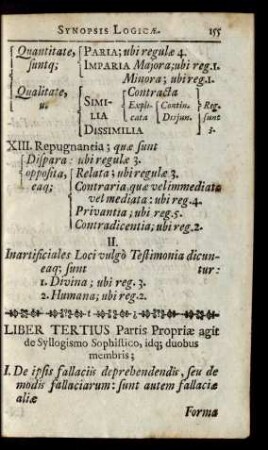 SYNOPSIS LOGICÆ. 155
Quantitate, PARIA; ubi regulæ 4.
suntq; IMPARIA Majora; ubi reg. 1.
Minora; ubi reg. 1.
Qualitate, Contracta
u. SIMI- Expli- Contin. Reg.
LIA cata Disjun. sunt
DISSIMILIA 3.
XIII. Repugnantia; quæ sunt
Dispara: ubi regulæ 3.
opposita, Relata; ubi regulæ 3.
eaq; Contraria, quæ vel immediata
vel mediata: ubi reg. 4.
Privantia; ubi reg. 5.
Contradicentia; ubi reg. 2.
II.
Inartificiales Loci vulgò Testimonia dicun-
eaq; sunt tur:
1. Divina; ubi reg. 3.
2. Humana; ubi reg. 2.
LIBER TERTIUS Partis Propriæ agit
de Syllogismo Sophistico, idq; duobus
membris;
I. De ipsis fallaciis deprehendendis, seu de
modis fallaciarum: sunt autem fallaciæ
aliæ
Forma